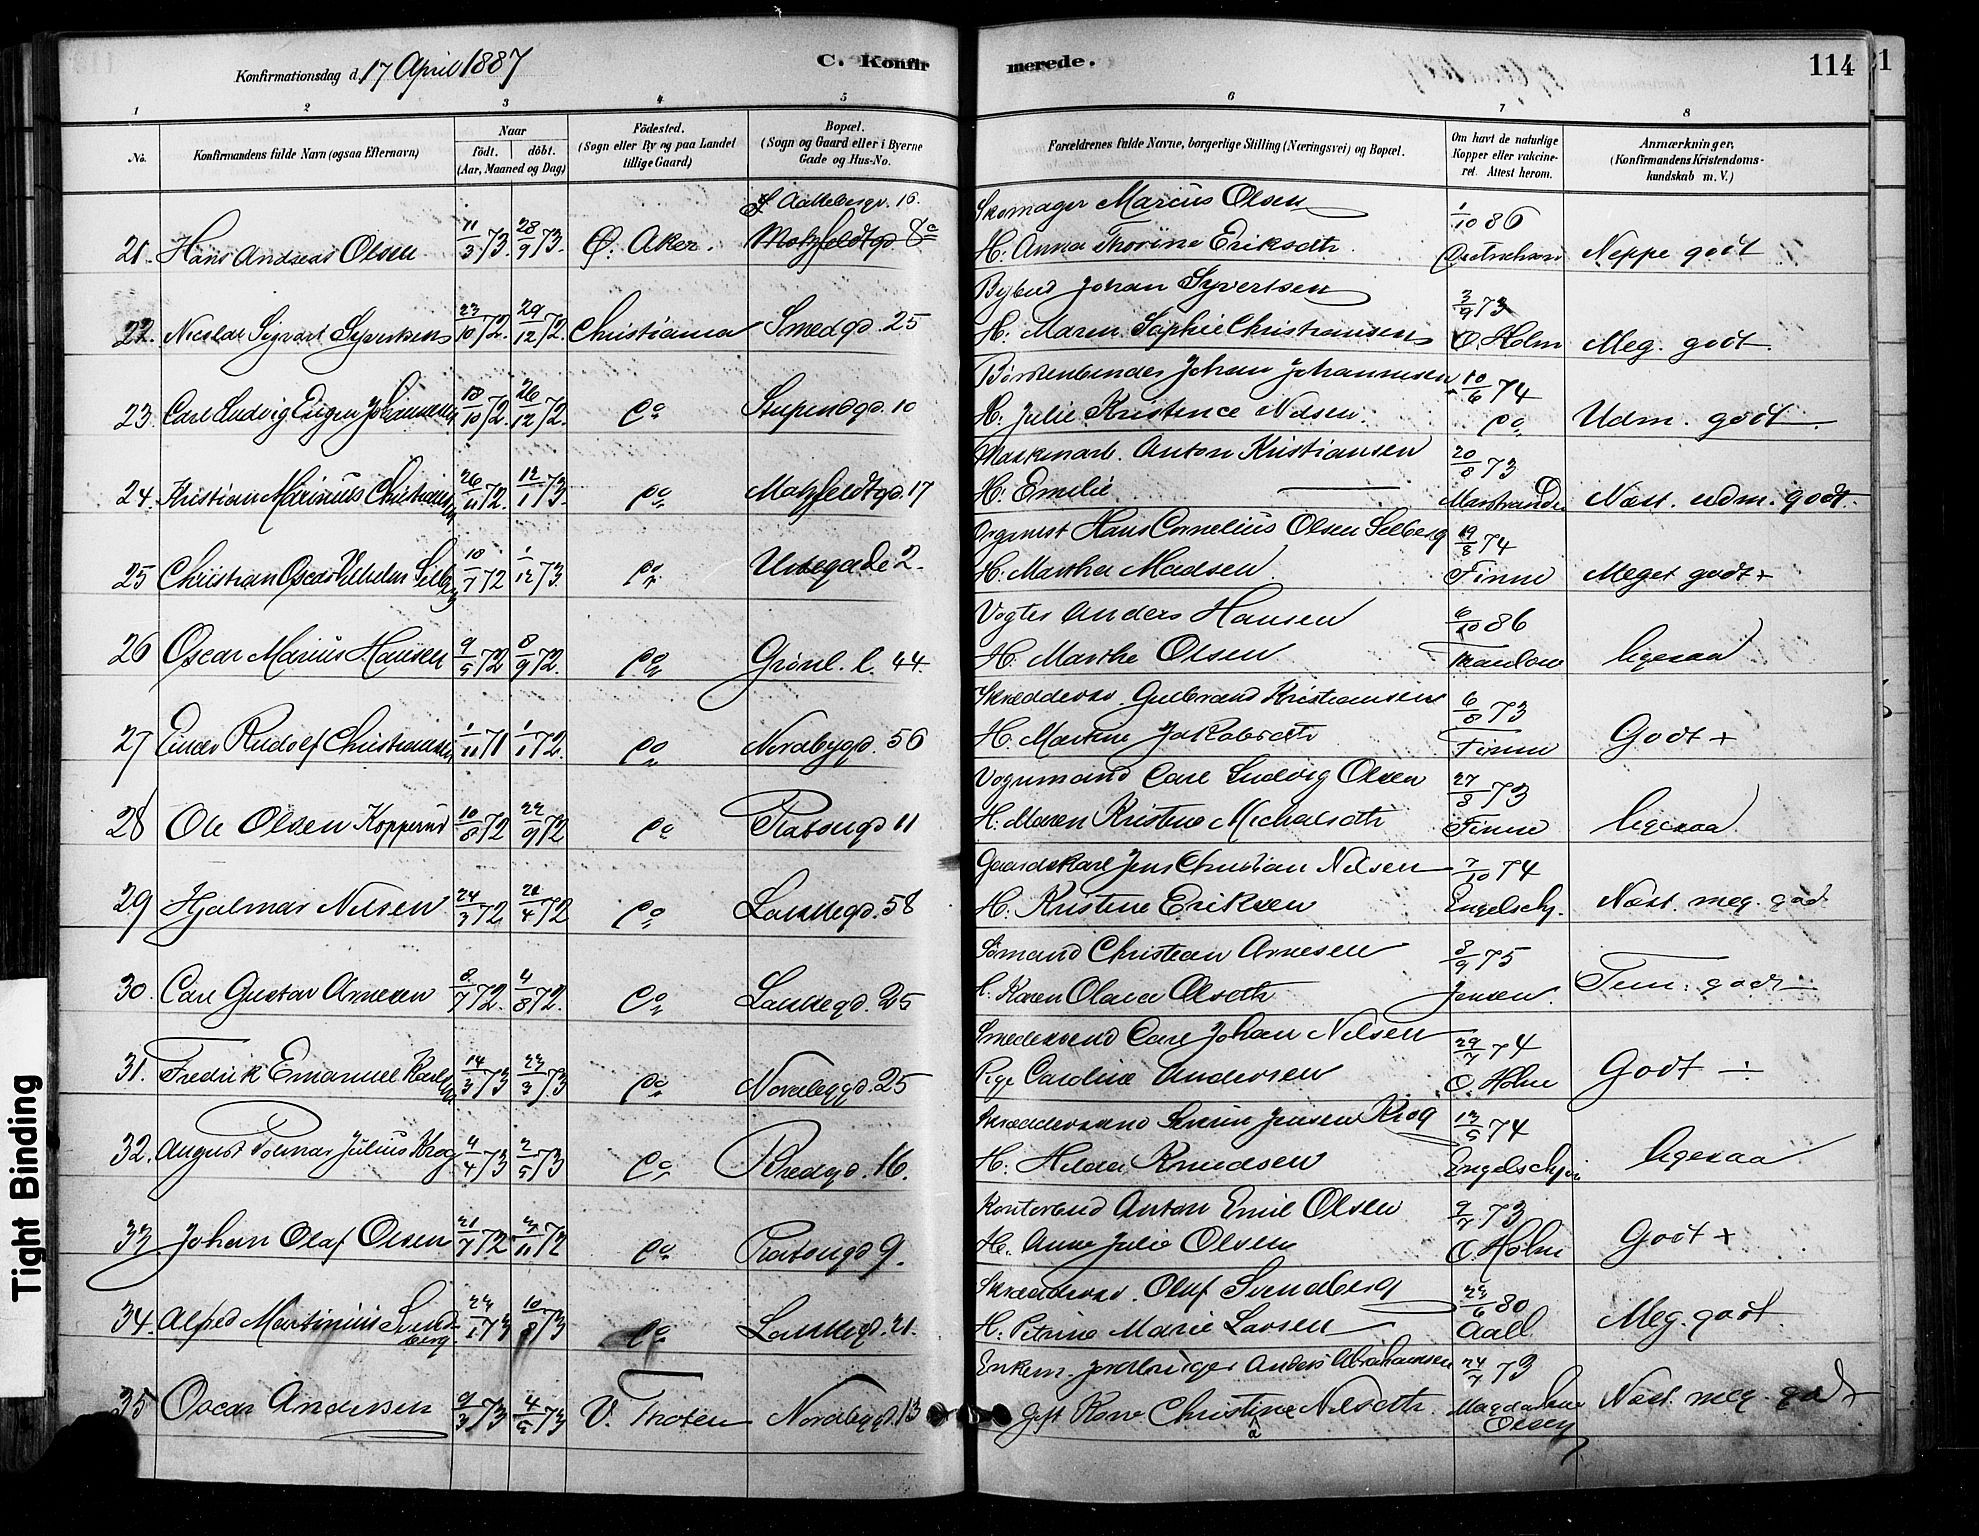 Konfirmationsdag d. 17 April 1887
C. Konfirmerede.
114
1 2 3 4 5 6 7 8
No.
Konfirmandens fulde Navn (ogsaa Efternavn)
Naar
födt. döbt.
(Aar, Maaned og Dag)
Födested.
(Sogn eller By og paa Landet
tillige Gaard)
Bopæl.
(Sogn og Gaard eller i Byerne
Gade og Hus-No.
Forældrenes fulde Navne, borgerlige Stilling (Næringsvei) og Bopæl.
Om havt de naturlige
Kopper eller vakcine-
ret. Attest herom.
Anmærkninger,
(Konfirmandens Kristendoms-
kundskab m. V.)
16.
Skomager Marcus Olsen
21. Hans Andreas Olsen 11/3 73. 28/9 73. Ø. Aker. Motzfeldtgd. 8c
1/10 86
H. Anna Thorine Eriksdtr. Neppe godt
Bybud Johan Syvertsen 3/9 73
22. Nicolai Sigvart Syvertsen 23/10 72. 29/12 72. Christiania Smedgd. 25
H. Maren Sophie Christiansen O. Holm Meg. godt.
Børstenbinder Johan Johannesen 10/6 74
23. Carl Ludvig Eugen Johannesen 18/10 72. 26/12 72. do Stupendgd. 10
H. Julie Kristence Nilsen. do Udm. godt
Maskinarb. Anton Kristiansen 20/8 73
24. Kristian Marinius Christiansen 26/11 72. 12/1 73. do Motzfeldtgd. 17
H. Emilie — Marstrander Næst. udm. godt.
Organist Hans Cornelius Olsen Selberg 19/8 74
25 Christian Oscar Vilhelm Selberg 10/7 72 1/12 73. do Urtegade 2.
H. Martha Madsen Finne Meget godt +
Vogter Anders Hansen 6/10 86
26 Oscar Marius Hansen 9/5 72 8/9 72. do Grønl. l. 44
H. Marthe Olsen Thaulow ligesaa
Skræddersv. Gulbrand Kristiansen 6/8 73
27 Einar Rudolf Christiansen 1/11 71 1/1 72. do Nordbygd. 56
H. Martine Jakobsdtr Finne Godt +
Vognmand Carl Ludvig Olsen 27/8 73
28 Ole Olsen Kopperud 10/8 72 22/9 72 do Platougd 11
H. Maren Kristine Michalsdtr Finne ligesaa
Gaardskarl Jens Christian Nilsen 7/10 74
29 Hjalmar Nilsen 24/3 72 21/4 72 do Lakkegd. 58
H. Kristine Eriksen Engelschj. Næst. meg. godt
Sømand Christian Arnesen 8/9 75
30. Carl Gustav Arnesen 8/7 72. 4/8 72. do Lakkegd. 25
H. Karen Olava Olsdtr Jensen. Tem. godt
Smedesvend Carl Johan Nilsen 29/7 74
31. Fredrik Emanuel Karlsen 14/3 73 23/3 73 do Nordbygd. 25
Pige Caroline Andersen O. Holm Godt ÷
Skræddersvend Søren Jensen Krog 13/5 74
32. August Volmar Julius Krog 4/4 73 2/5 73 do Bredgd. 16.
H. Hilda Knudsen Engelschjøn ligesaa
Kontorbud Anton Emil Olsen 9/7 73
33. Johan Olaf Olsen 21/7 72 3/11 72 do Platougd 9.
H. Anne Julie Olsen O. Holm Godt +
Skræddersv. Oluf Sundberg 23/6 80
34. Alfred Martinius Sund-
berg. 23/1 73 10/8 73 do Lakkegd. 21.
H. Petrine Marie Larsen Aall Meg. godt
Enkem. Jordbruger Anders Abrahamsen 24/7 73
35 Oscar Andersen 9/3 73 4/5 73 V. Thoten Nordbygd. 13
Gift Karen Christine Nilsdtr. Magdalene
Olsen Næst. meg. godt
Tight Binding